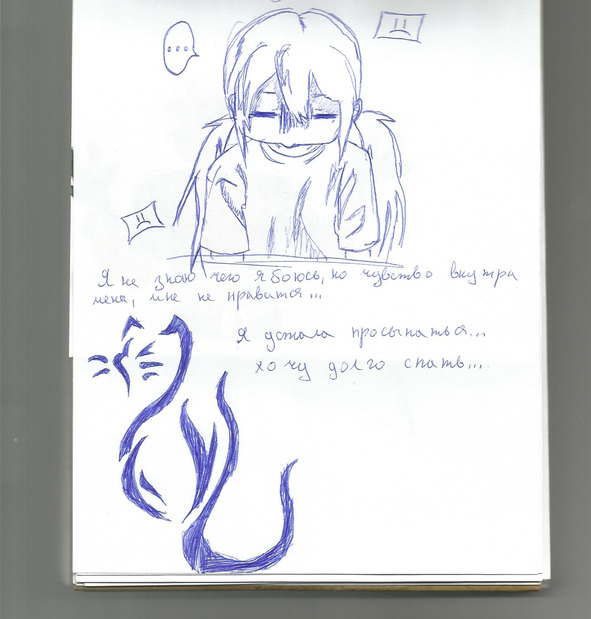 ...
Я не знаю чего я боюсь, но чувство внутри
меня, мне не нравится...
Я устала просыпаться...
хочу долго спать...